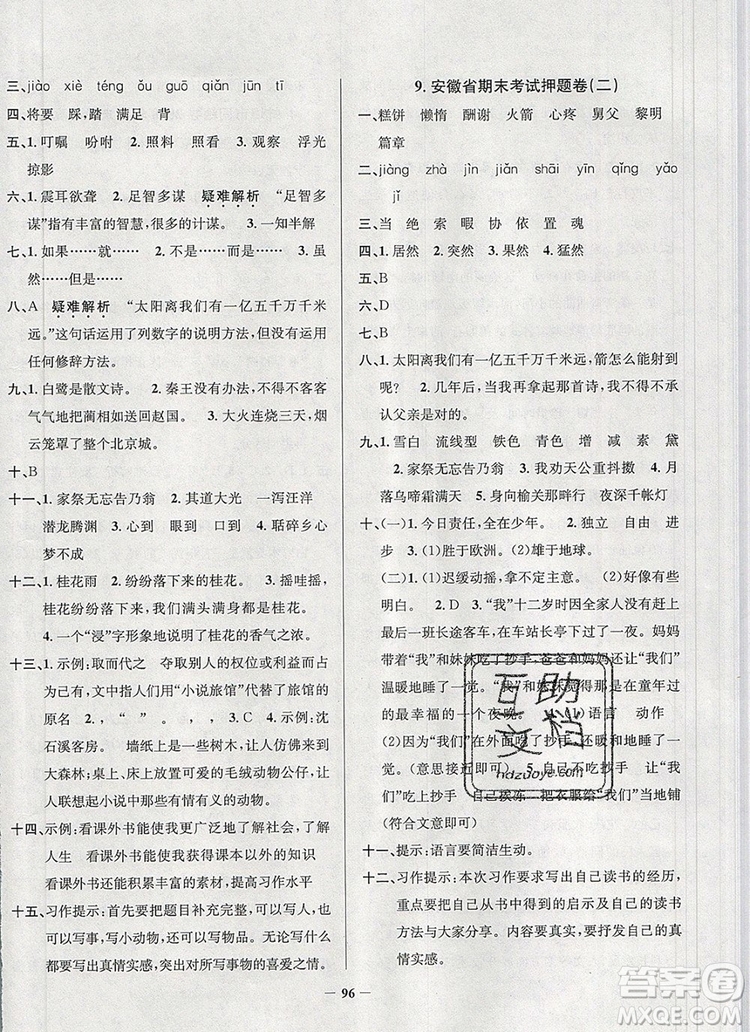 三、jiào xiè téng ǒu guō qiǎn jūn tī
四、将要 踩,踏 满足 背
五、1.叮嘱 吩咐 2.照料 照看 3.观察 浮光
掠影
六、1.震耳欲聋 2.足智多谋 疑难解析 “足智多
谋”指有丰富的智慧,很多的计谋。 3.一知半解
七、1.如果……就…… 2.不是……而是…… 3.虽
然……但是……
八、A 疑难解析 “太阳离我们有一亿五千万千米
远。”这句话运用了列数字的说明方法,没有运
用任何修辞方法。
九、1.白鹭是散文诗。 2.秦王没有办法,不得不客客
气气地把蔺相如送回赵国。 3.大火连烧三天,烟
云笼罩了整个北京城。
十、B
十一、1.家祭无忘告乃翁 2.其道大光 一泻汪洋
潜龙腾渊 3.心到 眼到 口到 4.聒碎乡心
梦不成
十二、1.桂花雨 2.纷纷落下来的桂花。 3.摇哇摇,
桂花纷纷落下来,我们满头满身都是桂花。
4.一个“浸”字形象地写出了桂花的香气之浓。
十三、1.示例:取而代之 夺取别人的权位或利益而
占为己有。文中指用“小说旅馆”代替了旅馆的
原名 2. , “ ” 。 , 。 3.C 4.示例:沈
石溪客房。 墙纸上是一些树木,让人仿佛来到
大森林;桌上、床上放置可爱的毛绒动物公仔,让
人联想起小说中那些有情有义的动物。
十四、示例:看课外书能使我更广泛地了解社会,了解
人生 看课外书能使我获得课本以外的知识
看课外书还能积累丰富的素材,提高习作水平
十五、习作提示:首先要把题目补充完整,可以写人,也
可以写动物、写小动物,也可以写景物,无论写什么,
都要写出真情实感,突出对所写事物的喜爱之情。
9. 安徽省期末考试押题卷(二)
一、糕饼 懒惰 酬谢 火箭 心疼 舅父 黎明
篇章
二、jiàng zhà jìn jiǎn shāi yīn qǐng yáo
jǐ
三、当 绝 索 暇 协 依 置 魂
四、1.居然 2.突然 3.果然 4.猛然
五、B
六、D
七、B
八、1.太阳离我们有一亿五千万千米远,箭怎么能射到
呢? 2.几年后,当我再次看到那首诗,我不得不
承认父亲是对的。
九、1.雪白 流线型 铁色 青色 增 减 素 黛
2.家祭无忘告乃翁 3.我劝天公重抖擞 4.月
落乌啼霜满天 5.身向榆关那畔行 夜深千帐灯
十、(一)1.今日责任,全在少年。 2.独立 自由 进
步 3.(1)胜于欧洲。 (2)雄于地球。
(二)1.(1)迟缓动摇,不果断。 (2)好像有些
明白。 2.D 3.“我”十二岁时因为全家人没
赶上最后一班长途客车,在车站长亭下过夜。妈妈
带着“我”和妹妹吃了抄手,爸爸和妈妈让“我们”
温暖地睡了一觉。“我”和妹妹觉得那是在童年过
的最幸福的一个晚上。 语言 动作
(2)吃了抄手,还温暖地睡了
一觉。(意思接近即可) 5.自己不吃抄手 让“我
们”吃上抄手 自己挨冻 把衣服给“我们”当地铺
(符合文意即可)
十一、提示:语言要简洁生动。
十二、习作提示:本次习作要写出自己读书的经历,
重点要写出自己从书中得到的启示及自己的读书
方法与大家分享。内容要真实,要抒发自己的真
情实感。
互助
文档
hdzuoye.com
— 96 —
答案圈
MXQE.COM